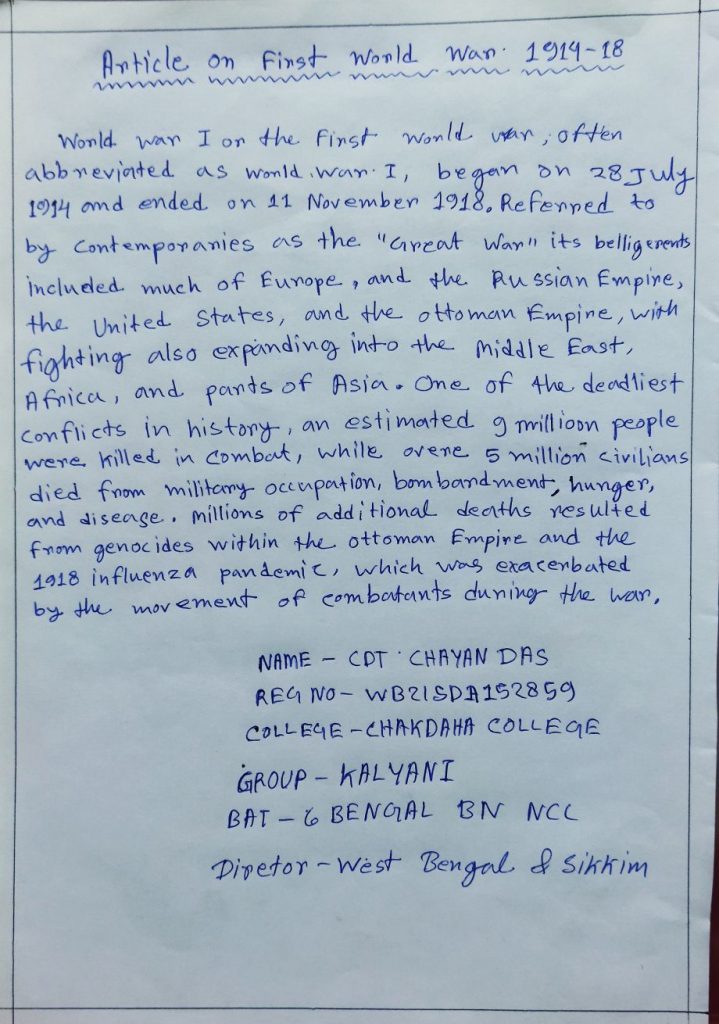 Article on First World War 1914-18
World war I or the First world war, often
abbreviated as world war I, began on 28 July
1914 and ended on 11 November 1918. Referred to
by contemporaries as the "Great War" its belligerents
included much of Europe, and the Russian Empire,
the United States, and the ottoman Empire, with
fighting also expanding into the Middle East,
Africa, and parts of Asia. One of the deadliest
conflicts in history, an estimated 9 millioon people
were killed in combat, while overe 5 million civilians
died from military occupation, bombardment, hunger,
and disease. Millions of additional deaths resulted
from genocides within the ottoman Empire and the
1918 influenza pandemic, which was exacerbated
by the movement of combatants during the war.
NAME - CDT CHAYAN DAS
REG NO - WB21SDA152859
COLLEGE - CHAKDAHA COLLEGE
GROUP - KALYANI
BAT - 6 BENGAL BN NCC
Diretor - West Bengal & Sikkim